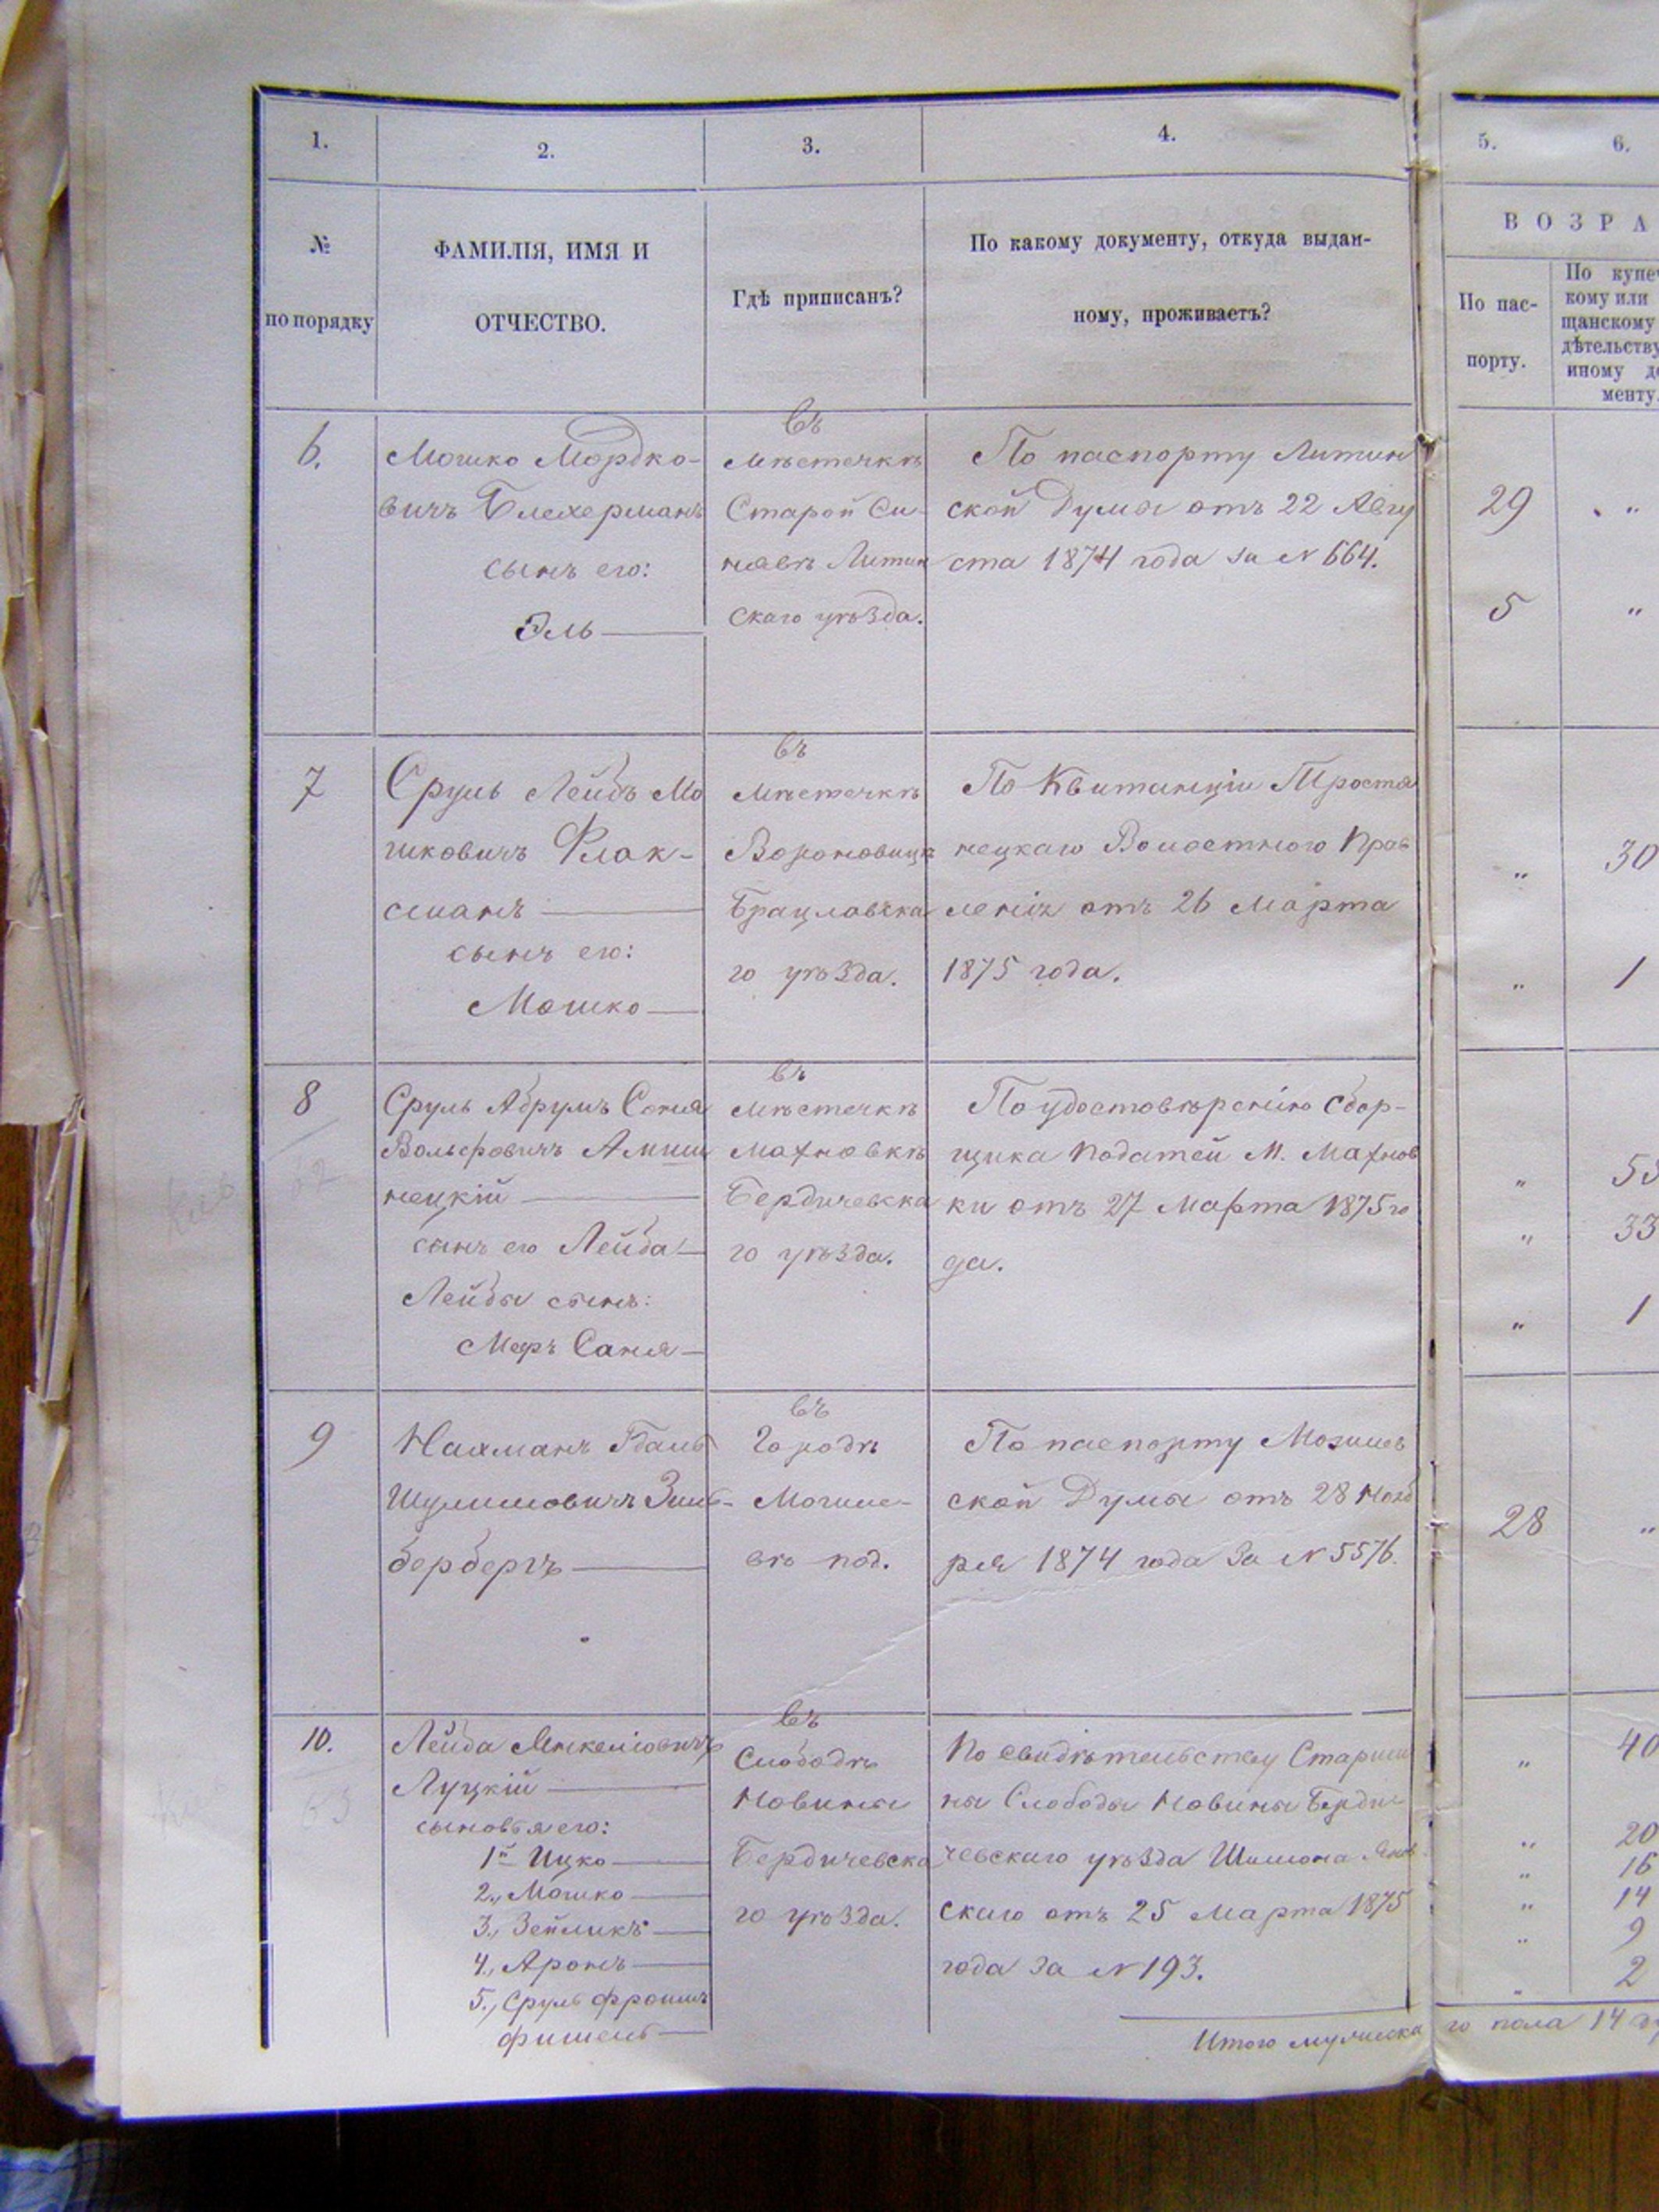 1.
2.
3.
4.
5.
6.
№
по порядку
ФАМИЛІЯ, ИМЯ И
ОТЧЕСТВО.
Гдѣ приписанъ?
По какому документу, откуда выдан-
ному, проживаетъ?
ВОЗРА
По пас-
порту.
По купеч
кому или
щанскому
дѣтельству
иному до
менту.
6.
Мошко Мордко-
вичъ Блехерманъ
сынъ его:
Эль
въ
мѣстечкѣ
Старой Си-
нявѣ Литин
скаго уѣзда.
По паспорту Литин
ской Думы отъ 22 Авгу
ста 1874 года за N 664.
29 "
5 "
7
Сруль Лейбъ Мо
шковичъ Флак-
сманъ
сынъ его:
Мошко
въ
мѣстечкѣ
Вороновицѣ
Брацлавска
го уѣзда.
По Квитанціи Тростя
нецкаго Волостного Прав
ленія отъ 26 Марта
1875 года.
" 30
" 1
8
Сруль Абрумъ Соня
Вольфовичъ
нецкій
сынъ его Лейба
Лейбы сынъ:
Меръ Саня
въ
мѣстечкѣ
Махновкѣ
Бердичевска
го уѣзда.
По удостовѣренію сбор-
щика податей М. Махнов
ки отъ 27 Марта 1875 го
да.
" 55
" 33
" 1
9
Нахманъ Гдаль
Шулимовичъ Зиль-
бербергъ
въ
Городѣ
Могиле-
вѣ под.
По паспорту Могилев
ской Думы отъ 28 Нояб
ря 1874 года за N 5576.
28 "
10.
Лейба Янкеліовичъ
Луцкій
сыновья его:
1й Ицко
2., Мошко
3., Зейликъ
4., Аронъ
5., Сруль Фроимъ
Фишель
въ
Слободѣ
Новины
Бердичевска
го уѣзда.
По свидѣтельству Старши
ны Слободы Новины Берди
чевскаго уѣзда Шимона
скаго отъ 25 Марта 1875
года за N 193.
" 40
" 20
" 16
" 14
" 9
" 2
Итого мужеска
го пола 14